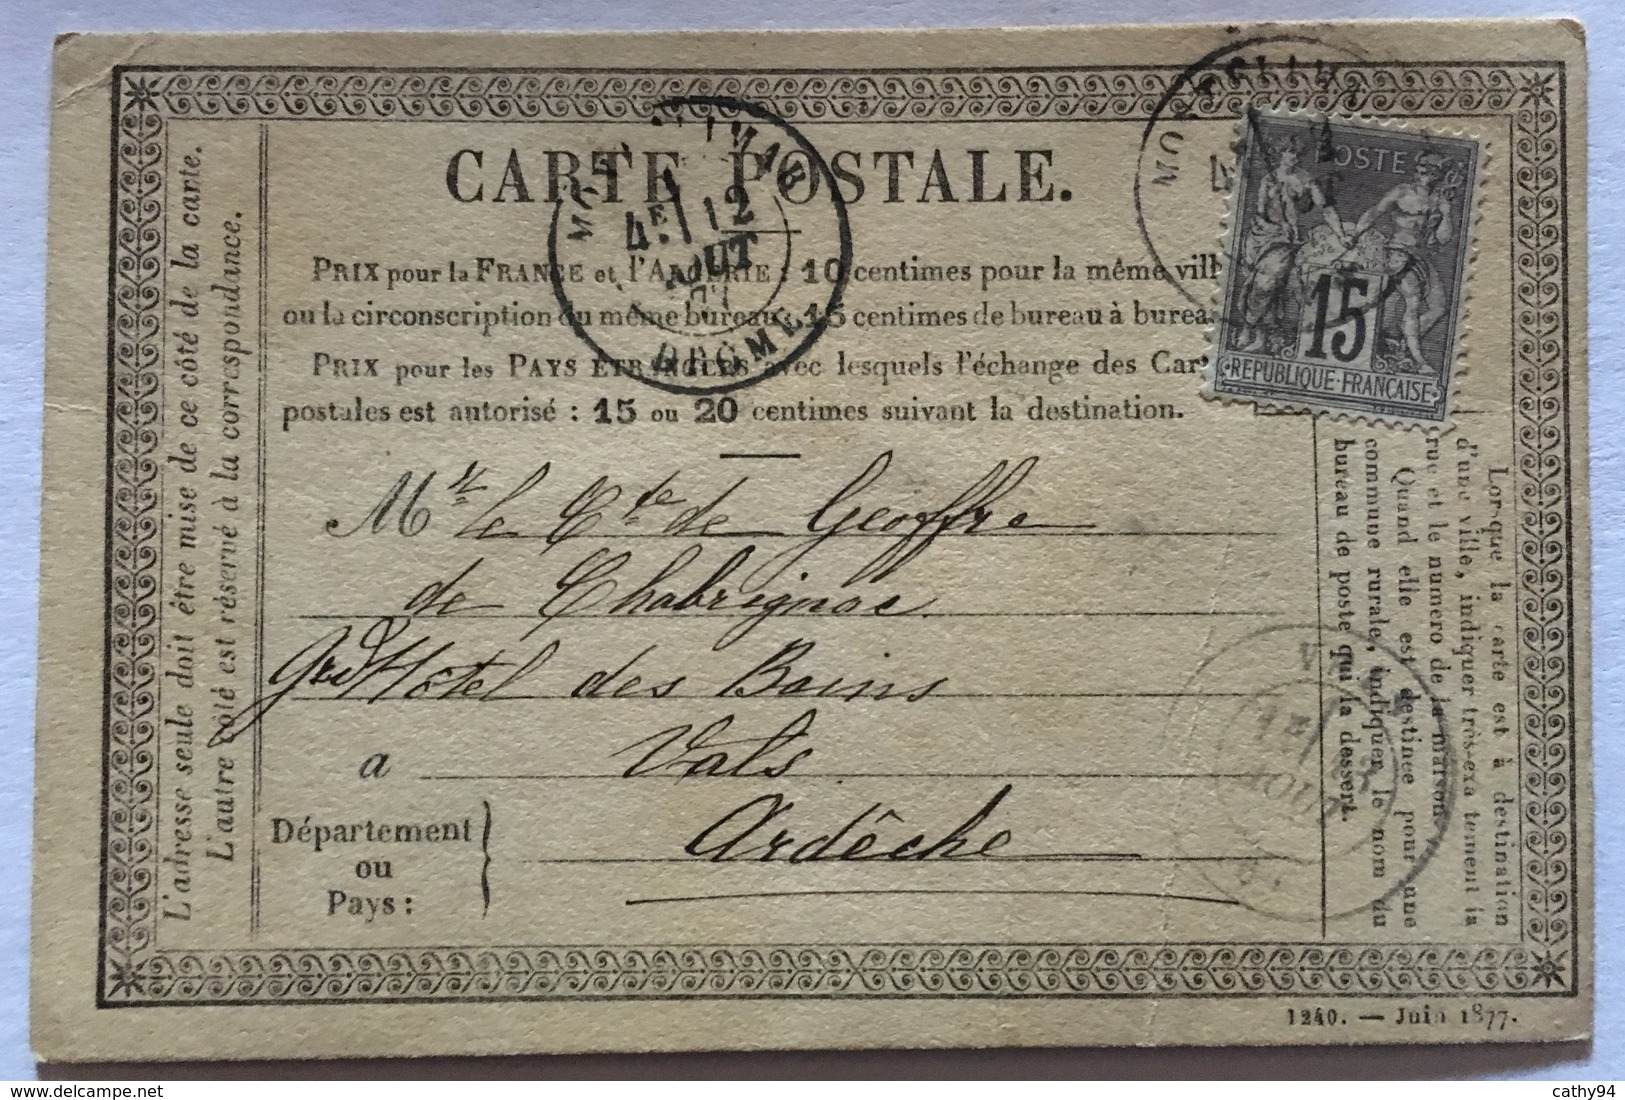 CARTE POSTALE.
PRIX pour la FRANCE et l'ALGÉRIE : 10 centimes pour la même vill
ou la circonscription du même bureau ; 15 centimes de bureau à burea
PRIX pour les PAYS ÉTRANGERS avec lesquels l'échange des Car
postales est autorisé : 15 ou 20 centimes suivant la destination.
L'adresse seule doit être mise de ce côté de la carte.
L'autre côté est réservé à la correspondance.
MONTÉLIMAR
4E 12
AOUT
77
DROME
MONTÉLIMA
4
POSTE
15
REPUBLIQUE FRANÇAISE
Mr le Cte de Geoffre
de Chabrignac
Grd Hôtel des Bains
a Vals
Département
ou
Pays :
Ardêche
Lorsque la carte est à destination
d'une ville, indiquer très-exactement la
rue et le numéro de la maison.
Quand elle est destinée pour une
commune rurale, indiquer le nom du
bureau de poste qui la dessert.
AOUT
1240. — Juin 1877.
cathy94